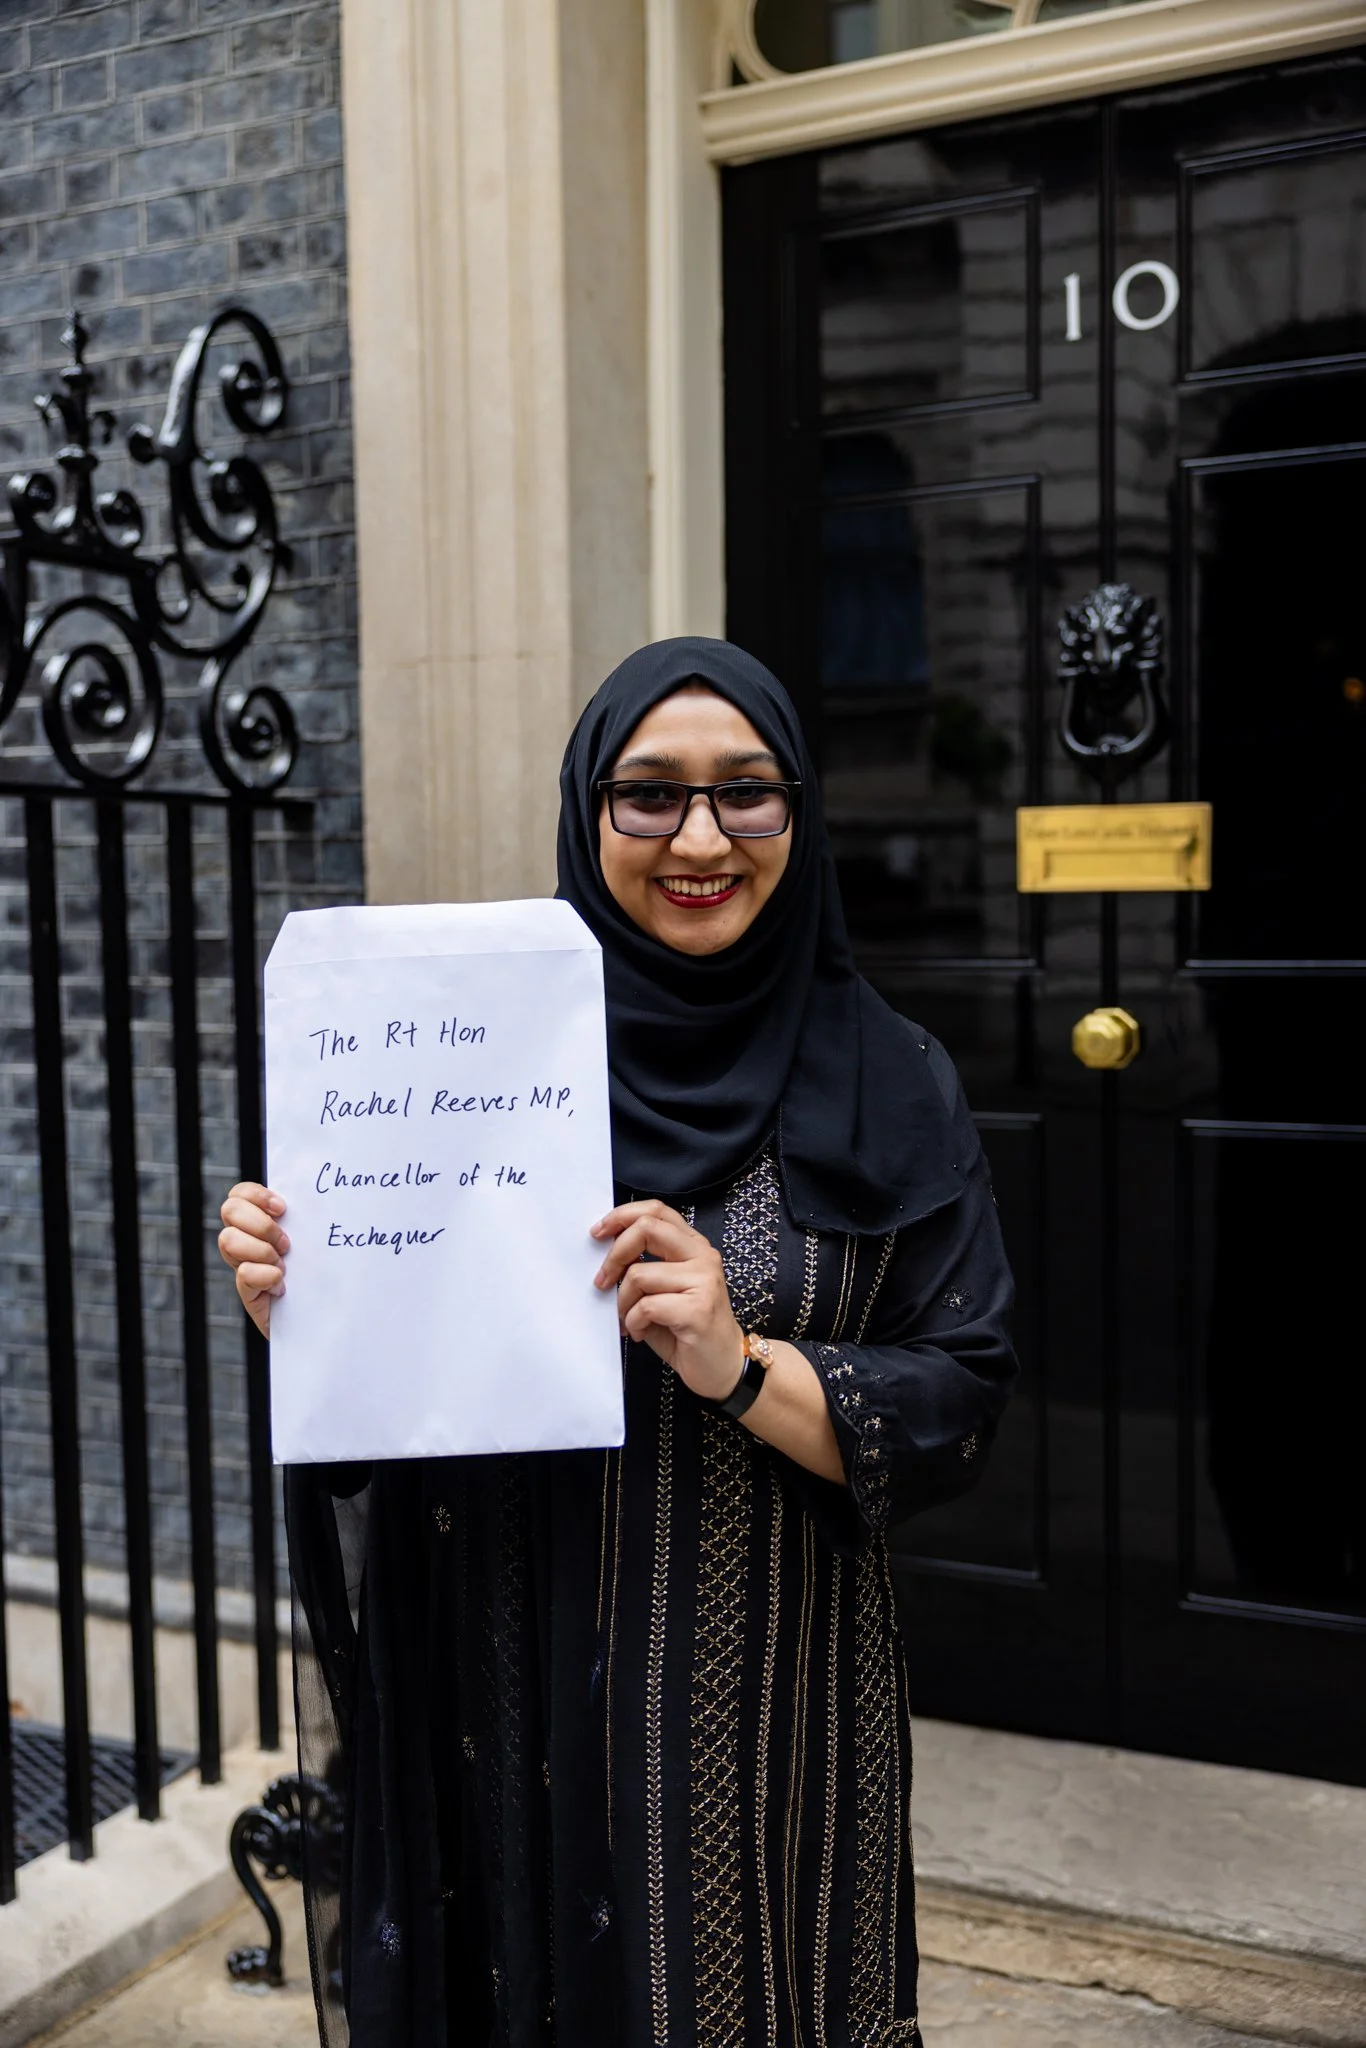 10
The Rt Hon
Rachel Reeves MP,
Chancellor of the
Exchequer